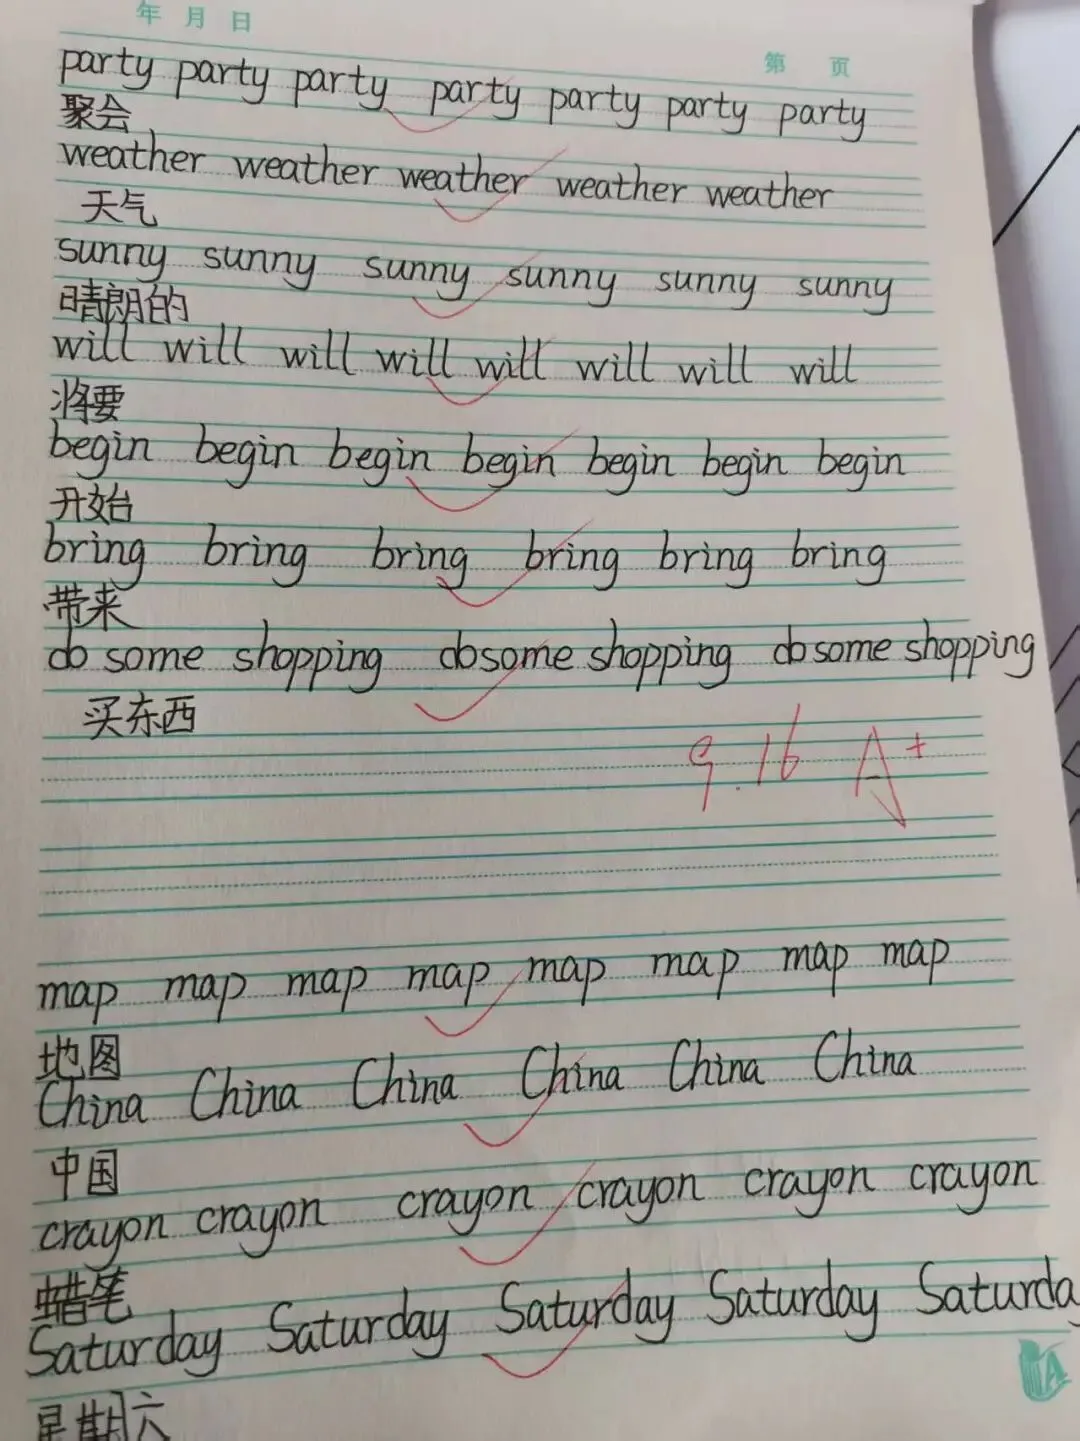 年 月 日
第 页
party party party party party party party
聚会
weather weather weather weather weather
天气
sunny sunny sunny sunny sunny sunny
晴朗的
will will will will will will will will
将要
begin begin begin begin begin begin begin
开始
bring bring bring bring bring bring
带来
do some shopping do some shopping do some shopping
买东西
9.16 A+
map map map map map map map map
地图
China China China China China China
中国
crayon crayon crayon crayon crayon crayon
蜡笔
Saturday Saturday Saturday Saturday Saturda
星期六